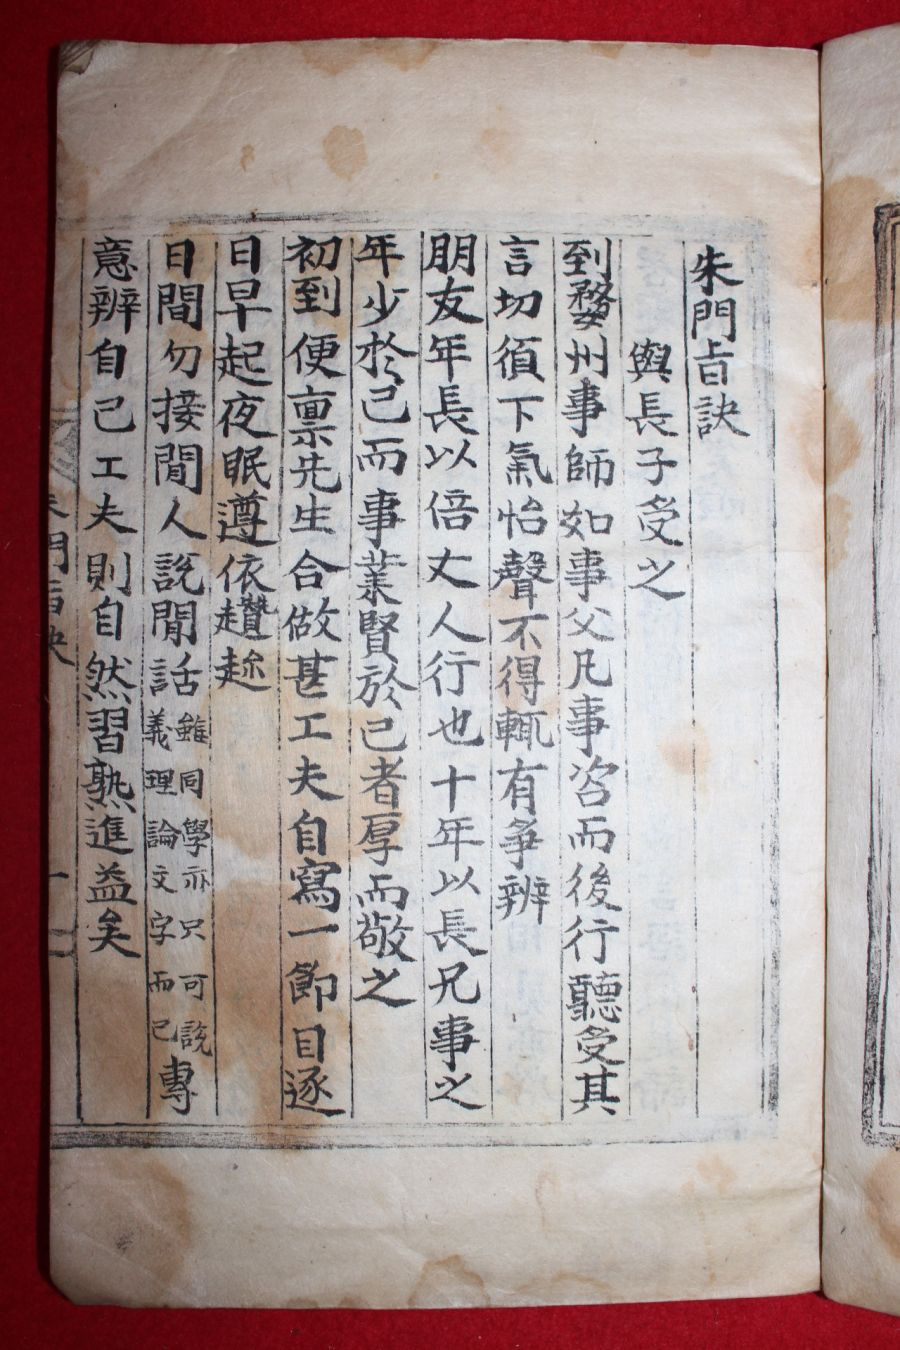 朱門旨訣
與長子受之
到婺州事師如事父凡事咨而後行聽受其
言切須下氣怡聲不得輒有爭辨
朋友年長以倍丈人行也十年以長兄事之
年少於己而事業賢於己者厚而敬之
初到便稟先生合做甚工夫自寫一節目逐
日早起夜眠遵依趲趂
日間勿接閒人說閒話雖同學亦只可說義理論文字而已專
意辨自己工夫則自然習熟進益矣
朱門旨訣 一